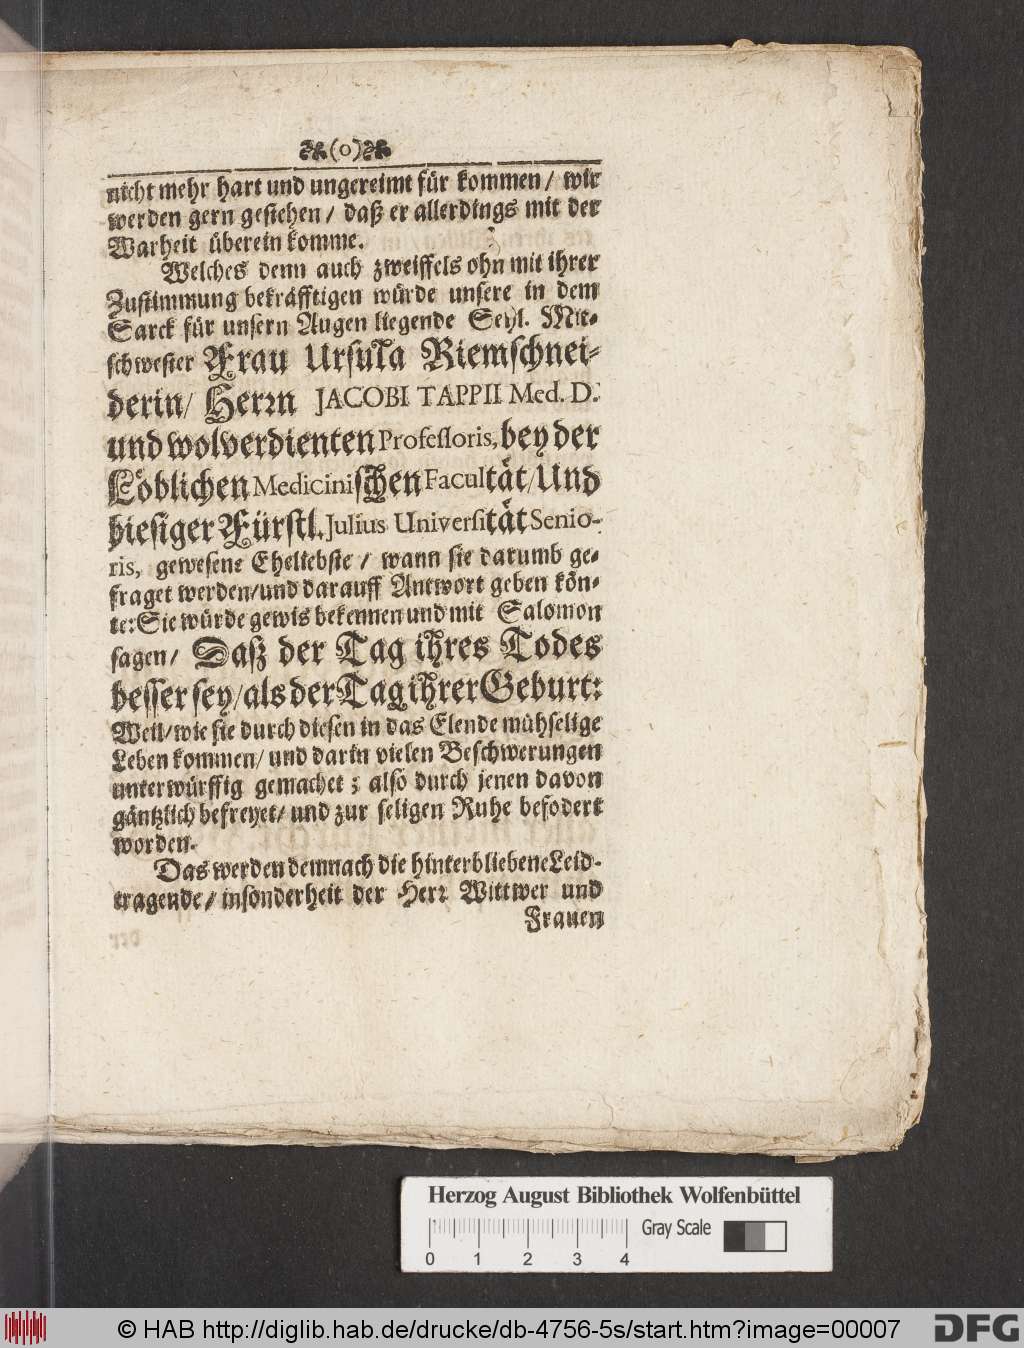 ❧(o)❧
nicht mehr hart und ungereimt für kommen/ wir
werden gern gestehen/ daß er allerdings mit der
Warheit überein komme.
Welches denn auch zweiffels ohn mit ihrer
Zustimmung bekräfftigen würde unsere in dem
Sarck für unsern Augen liegende Seyl. Mit-
schwester Frau Ursula Riemschnei-
derin/ Herrn JACOBI TAPPII Med. D.
und wolverdienten Professoris, bey der
Löblichen Medicinischen Facultät/Und
hiesiger Fürstl. Julius Universität Senio-
ris, gewesene Eheliebste/ wann sie darumb ge-
fraget werden/und darauff Antwort geben kön-
te: Sie würde gewis bekennen und mit Salomon
sagen/ Daß der Tag ihres Todes
besser sey/als der Tag ihrer Geburt:
Weil/wie sie durch diesen in das Elende mühselige
Leben kommen/ und darin vielen Beschwerungen
unterwürffig gemachet; also durch jenen davon
gäntzlich befreyet/ und zur seligen Ruhe befodert
worden.
Das werden demnach die hinterbliebene Leid-
tragende/ insonderheit der Herr Wittwer und
Frauen
Herzog August Bibliothek Wolfenbüttel
0 1 2 3 4 Gray Scale
© HAB http://diglib.hab.de/drucke/db-4756-5s/start.htm?image=00007 DFG